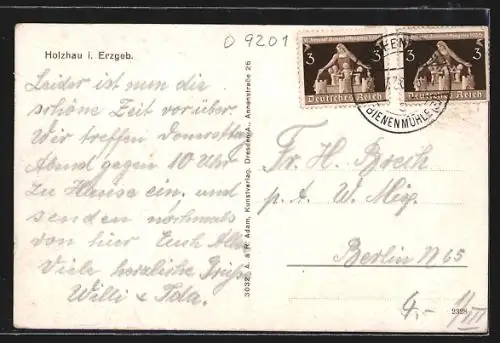 Holzhau i. Erzgeb.
O 9201
Leider ist nun die
schöne Zeit vorüber.
Wir treffen Donnerstag
Abend gegen 10 Uhr
zu Hause ein. und
senden nochmals
von hier Euch Allen
Viele herzliche Grüße
Willi & Ida.
3032 A. & R. Adam, Kunstverlag, Dresden-A., Annenstraße 26
3 3
Deutsches Reich
Deutsches Reich
BIENENMÜHLE
Fr. H.
p. t. W.
Berlin N 65
2328
4.- 1/III